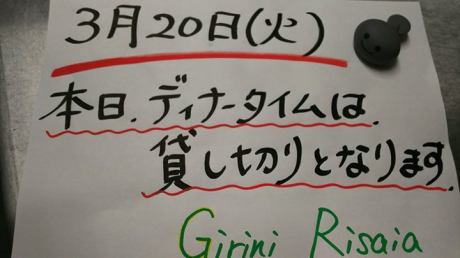 3月20日(火)
本日、ディナータイムは、
貸し切りとなります。
Girini Risaia